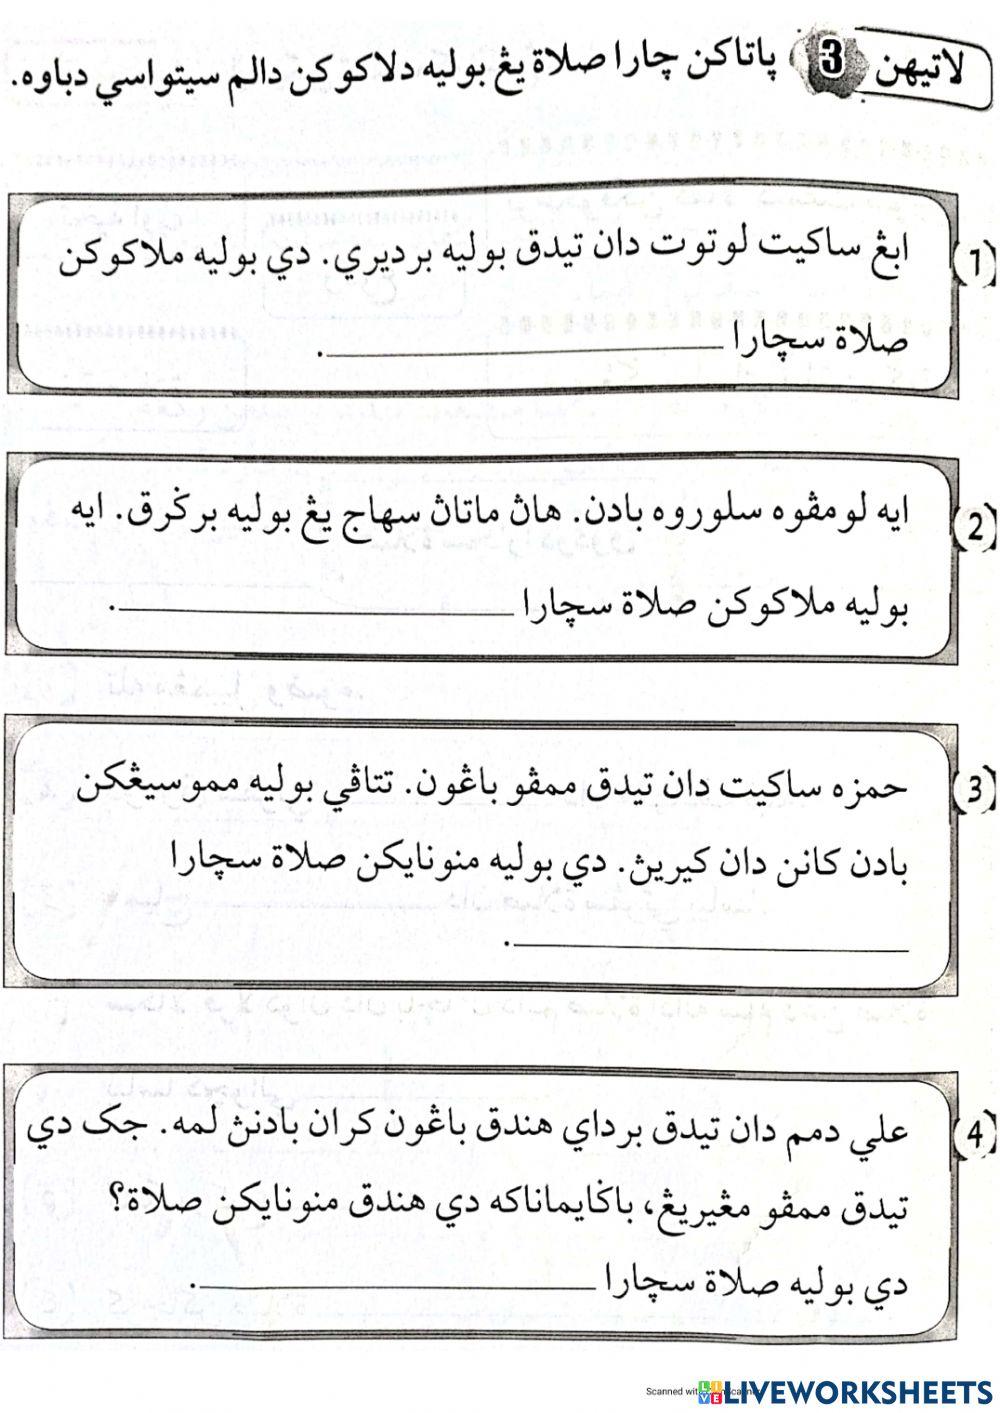 لاتيهن 3 ڤاتاكن چارا صلاة يڠ بوليه دلاكوكن دالم سيتواسي دباوه.
1 ابڠ ساكيت لوتوت دان تيدق بوليه برديري. دي بوليه ملاكوكن
صلاة سچارا ____________.
2 ايه لومڤوه سلوروه بادن. هاڽ ماتاڽ سهاج يڠ بوليه برݢرق. ايه
بوليه ملاكوكن صلاة سچارا ____________.
3 حمزه ساكيت دان تيدق ممڤو باڠون. تتاڤي بوليه مموسيڠكن
بادن كانن دان كيريڽ. دي بوليه منونايكن صلاة سچارا
____________.
4 علي دمم دان تيدق برداي هندق باڠون كران بادنڽ لمه. جک دي
تيدق ممڤو مڠيريڠ، باݢايماناكه دي هندق منونايكن صلاة؟
دي بوليه صلاة سچارا ____________.
LIVEWORKSHEETS